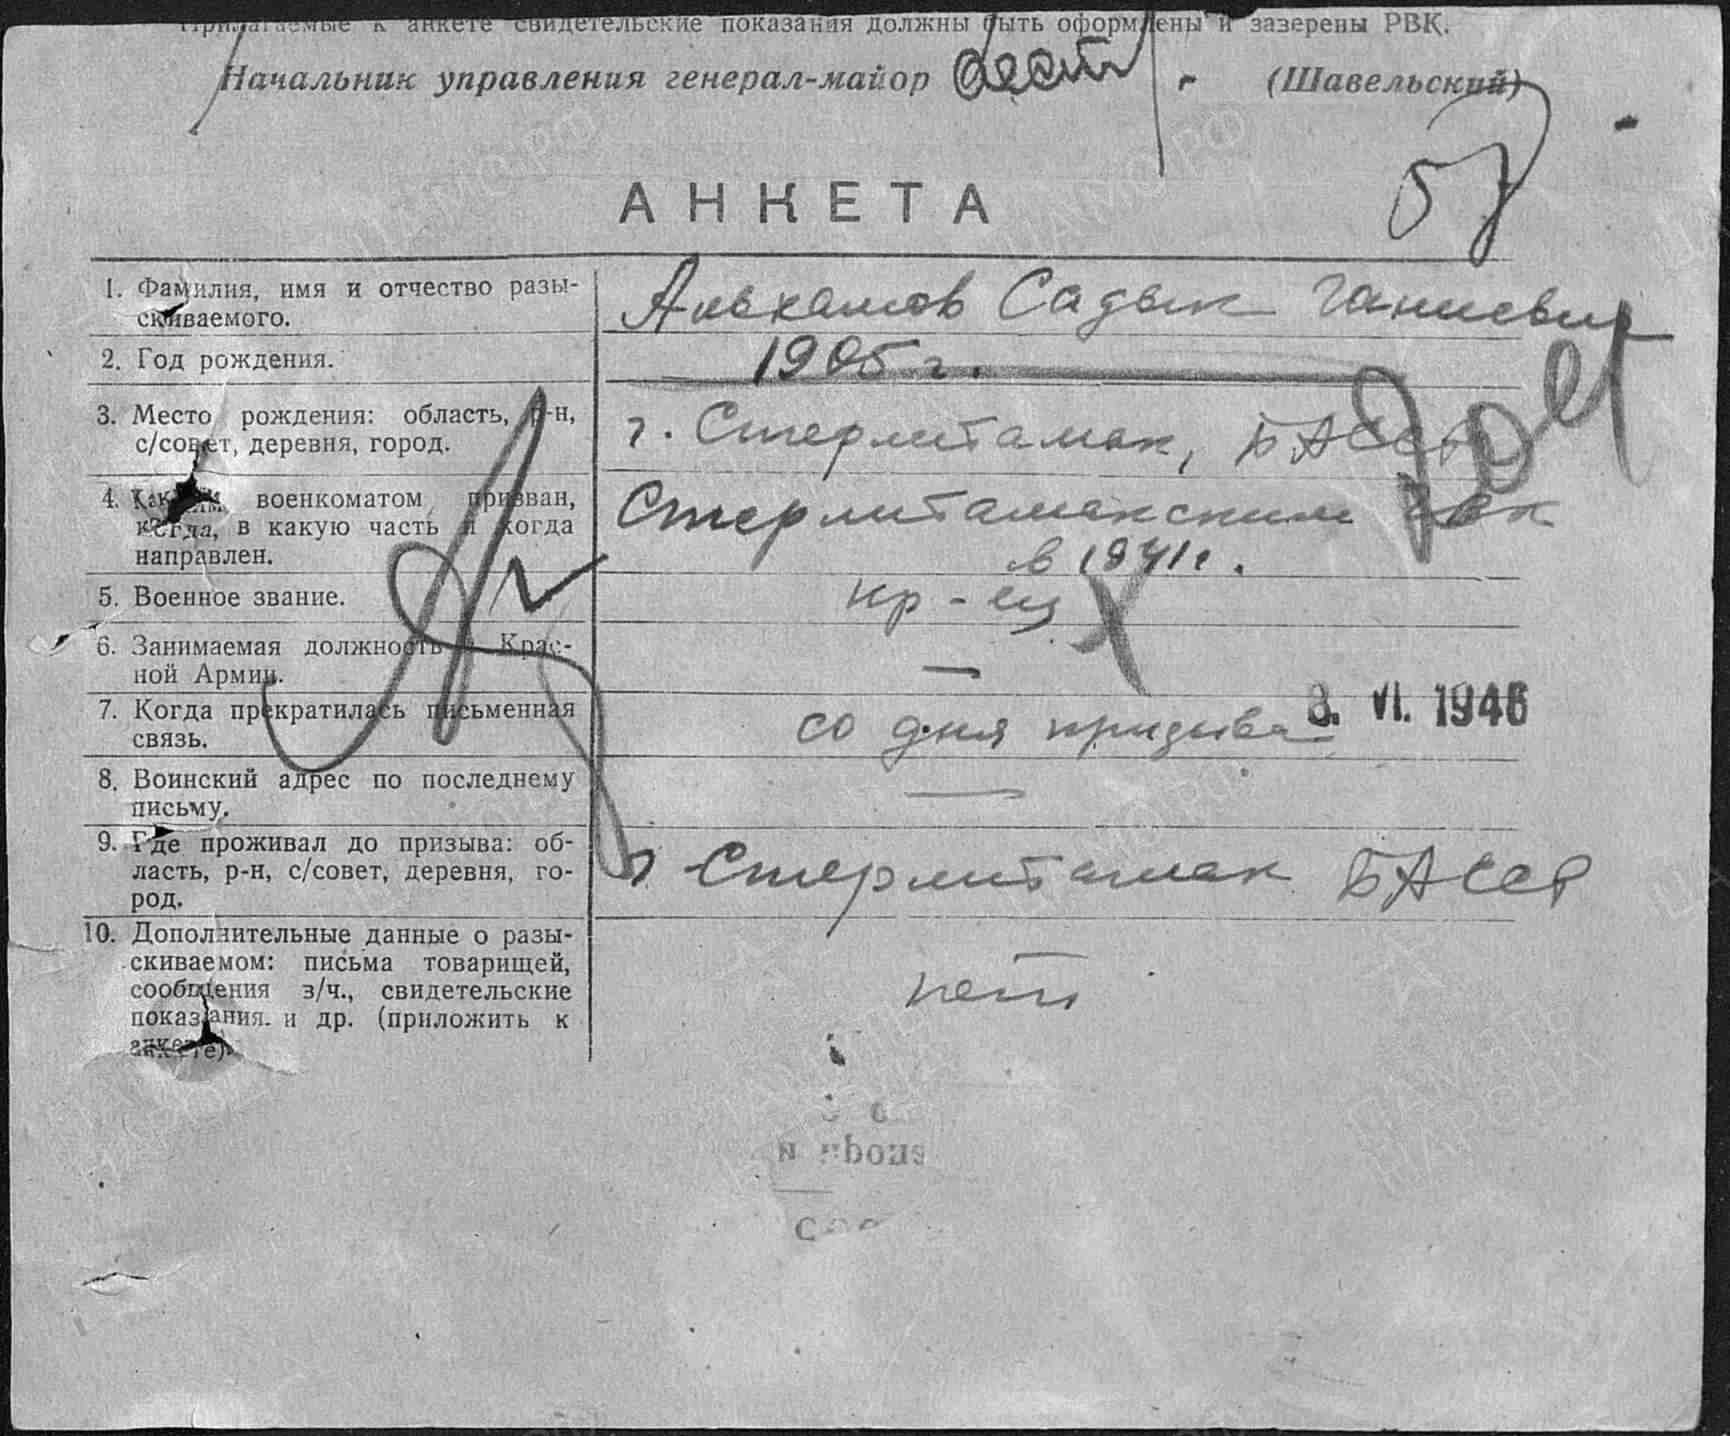 Прилагаемые к анкете свидетельские показания должны быть оформлены и заверены РВК.
Начальник управления генерал-майор (Шавельский)
57
АНКЕТА
1. Фамилия, имя и отчество разы-
скиваемого.
Садык Ганиевич
2. Год рождения.
1905 г.
3. Место рождения: область, р-н,
с/совет, деревня, город.
г. Стерлитамак, БАССР
4. Каким военкоматом призван,
когда, в какую часть и когда
направлен.
Стерлитамакским
в 1941 г.
5. Военное звание.
кр-ец
6. Занимаемая должность в Крас-
ной Армии.
—
7. Когда прекратилась письменная
связь.
со дня призыва
8. VI. 1946
8. Воинский адрес по последнему
письму.
—
9. Где проживал до призыва: об-
ласть, р-н, с/совет, деревня, го-
род.
г Стерлитамак БАССР
10. Дополнительные данные о разы-
скиваемом: письма товарищей,
сообщения з/ч., свидетельские
показания и др. (приложить к
анкете).
нет